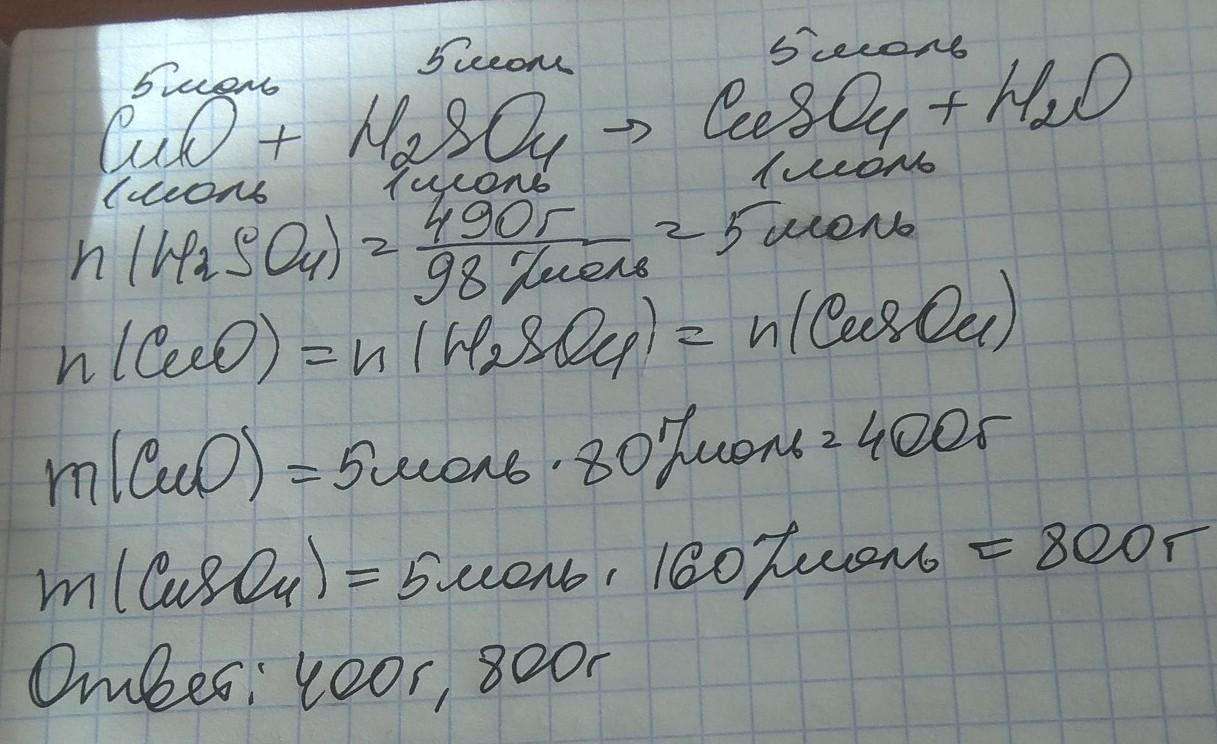 5моль 5моль 5моль
CuO + H2SO4 → CuSO4 + H2O
1моль 1моль 1моль
n(H2SO4) = 490г / 98 г/моль = 5 моль
n(CuO) = n(H2SO4) = n(CuSO4)
m(CuO) = 5моль · 80 г/моль = 400г
m(CuSO4) = 5моль · 160 г/моль = 800г
Ответ: 400г, 800г